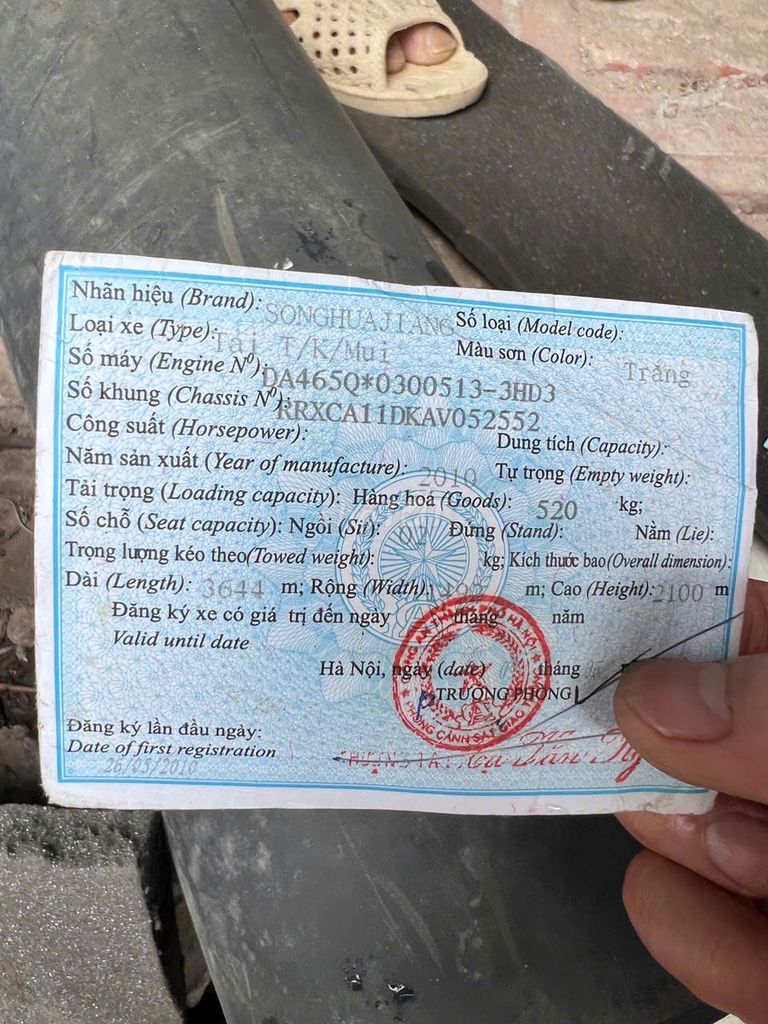 Nhãn hiệu (Brand): SONGHUAJIANG Số loại (Model code):
Loại xe (Type): Tải T/K/Mui Màu sơn (Color): Trắng
Số máy (Engine Nº): DA465Q*0300513-3HD3
Số khung (Chassis Nº): RRXCA11DKAV052552
Công suất (Horsepower): Dung tích (Capacity):
Năm sản xuất (Year of manufacture): 2010 Tự trọng (Empty weight):
Tải trọng (Loading capacity): Hàng hoá (Goods): 520 kg;
Số chỗ (Seat capacity): Ngồi (Sit): 02 Đứng (Stand): Nằm (Lie):
Trọng lượng kéo theo(Towed weight): kg; Kích thước bao(Overall dimension):
Dài (Length): 3644 m; Rộng (Width): m; Cao (Height): 2100 m
Đăng ký xe có giá trị đến ngày tháng năm
Valid until date
Hà Nội, ngày (date) tháng
TRƯỞNG PHÒNG
PHÒNG CẢNH SÁT GIAO
Đăng ký lần đầu ngày:
Date of first registration
26/05/2010